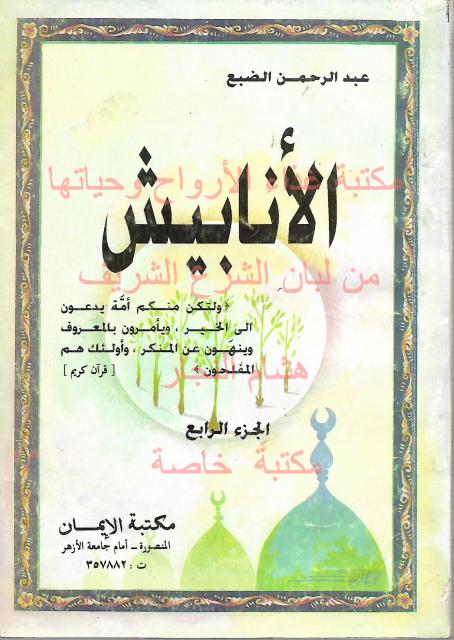 عبد الرحمن الضبع
مكتبة غذاء الأرواح وحياتها
الأنابيش
من لبان الشرع الشريف
﴿ ولتكن منكم أمَّة يدعون
الى الخير ، ويأمرون بالمعروف
وينهَون عن المنكر ، وأولئك هم
المفلحون ﴾ [ قرآن كريم ]
هشام النجار
الجزء الرابع
مكتبة خاصة
مكتبة الإيمان
المنصورة - أمام جامعة الأزهر
ت : ٣٥٧٨٨٢